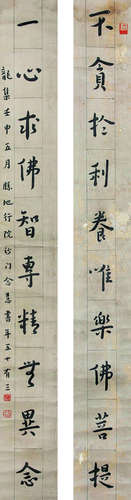 不貪於利養唯樂佛菩提
一心求佛智專精無異念
龍集壬申五月勝地行院沙门念慧書年五十有三